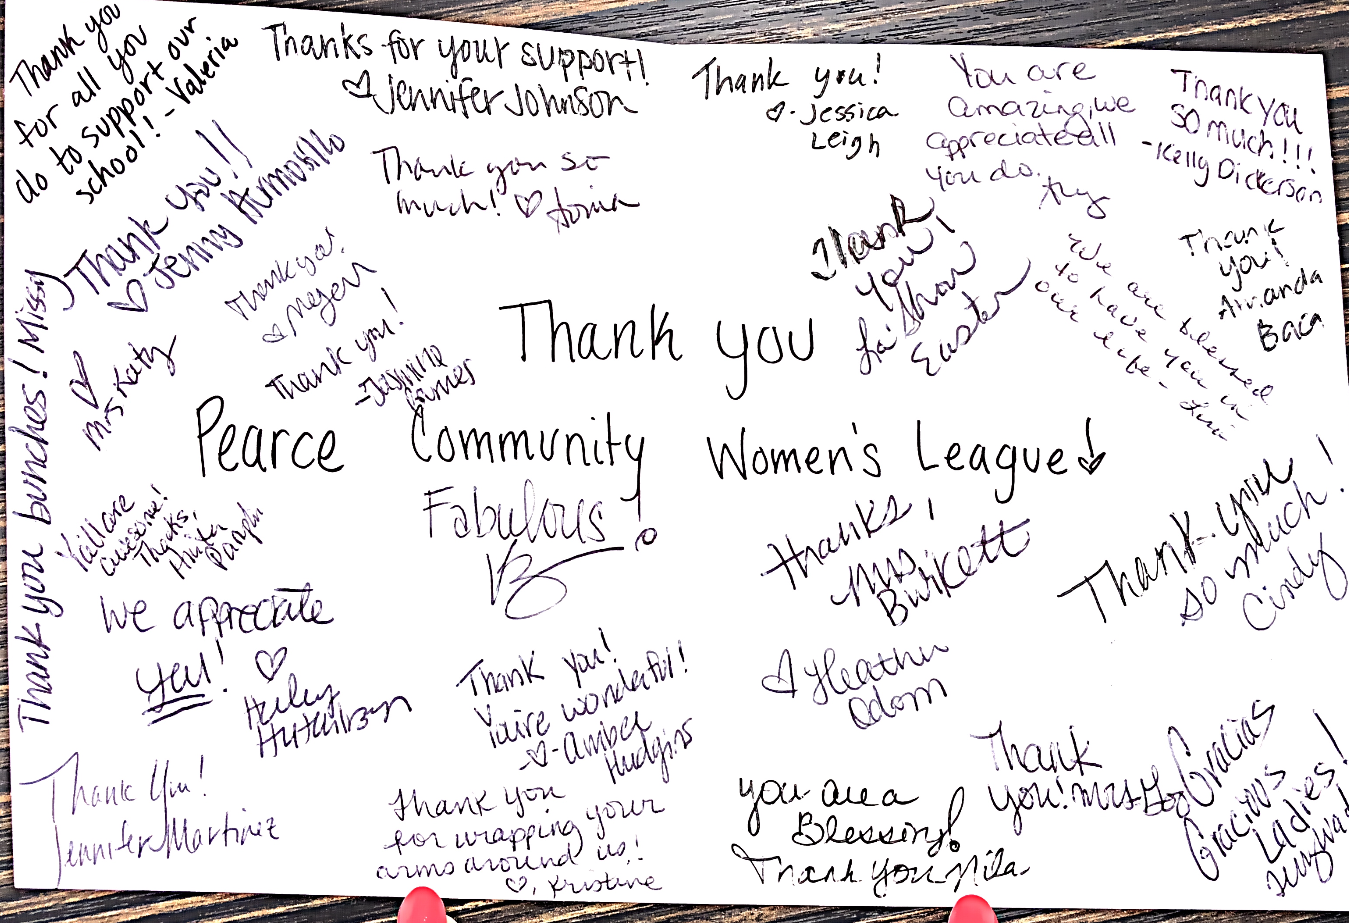 Thank you
for all you
do to support our
school! - Valeria
Thanks for your support!
♡ Jennifer Johnson
Thank you!
♡ - Jessica
Leigh
You are
amazing, we
appreciate all
you do.
Thank you
so much!!!
- Kelly Dickerson
Thank you!!
♡ Jenny Hermosillo
Thank you so
much! ♡
Thank you!
Thank
you!
La'Shon
Easter
We are blessed
to have you in
our life -
Thank
you!
Amanda
Baca
Thank you bunches! Missy
♡
Mrs Katy
Thank you!
- Jasmine
Thank you
Pearce Community Women's League!
Fabulous!
Y'all are
awesome!
Thanks,
Thanks,
Mrs
Burkett
Thank you
so much!
Cindy
We appreciate
you! ♡
Haley
Thank you!
You're wonderful!
♡ - Amber
Hudgins
♡ Heather
Odom
Thank You!
Jennifer Martinez
Thank you
for wrapping your
arms around us!
♡, Kristine
you are a
Blessing!
Thank You Nila
Thank
you! Mrs
Gracias
Gracious
Ladies!